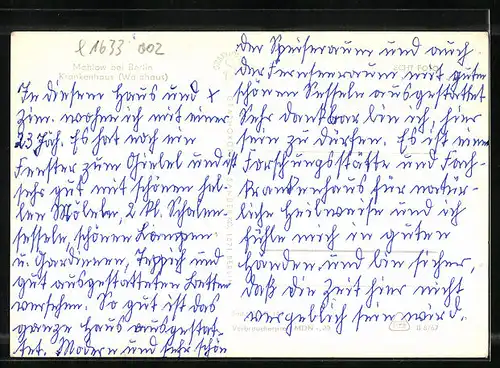 l 1633 002
Mahlow bei Berlin
Krankenhaus (Waldhaus)
In diesem Haus und x
Zim. wohne ich mit einer
23 Jäh. Es hat noch ein
Fenster zum Giebel und ist
sehr gut mit schönen hel-
len Möbeln, 2 kl. Schalen-
sesseln, schönen Lampen
u. Gardienen, Teppich und
gut ausgestatteten Betten
versehen. So gut ist das
ganze Haus ausgestat-
tet. Modern und sehr schön
der Speiseraum und auch
der Fernsehraum mit guten
schönen Sesseln ausgestattet
Sehr dankbar bin ich, hier
sein zu dürfen. Es ist eine
Forschungsstätte und Fach-
krankenhaus für natür-
liche Heilweise und ich
fühle mich in guten
Händen und bin sicher,
daß die Zeit hier nicht
vergeblich sein wird.
ECHT FOTO
Verbraucherpreis MDN -,20